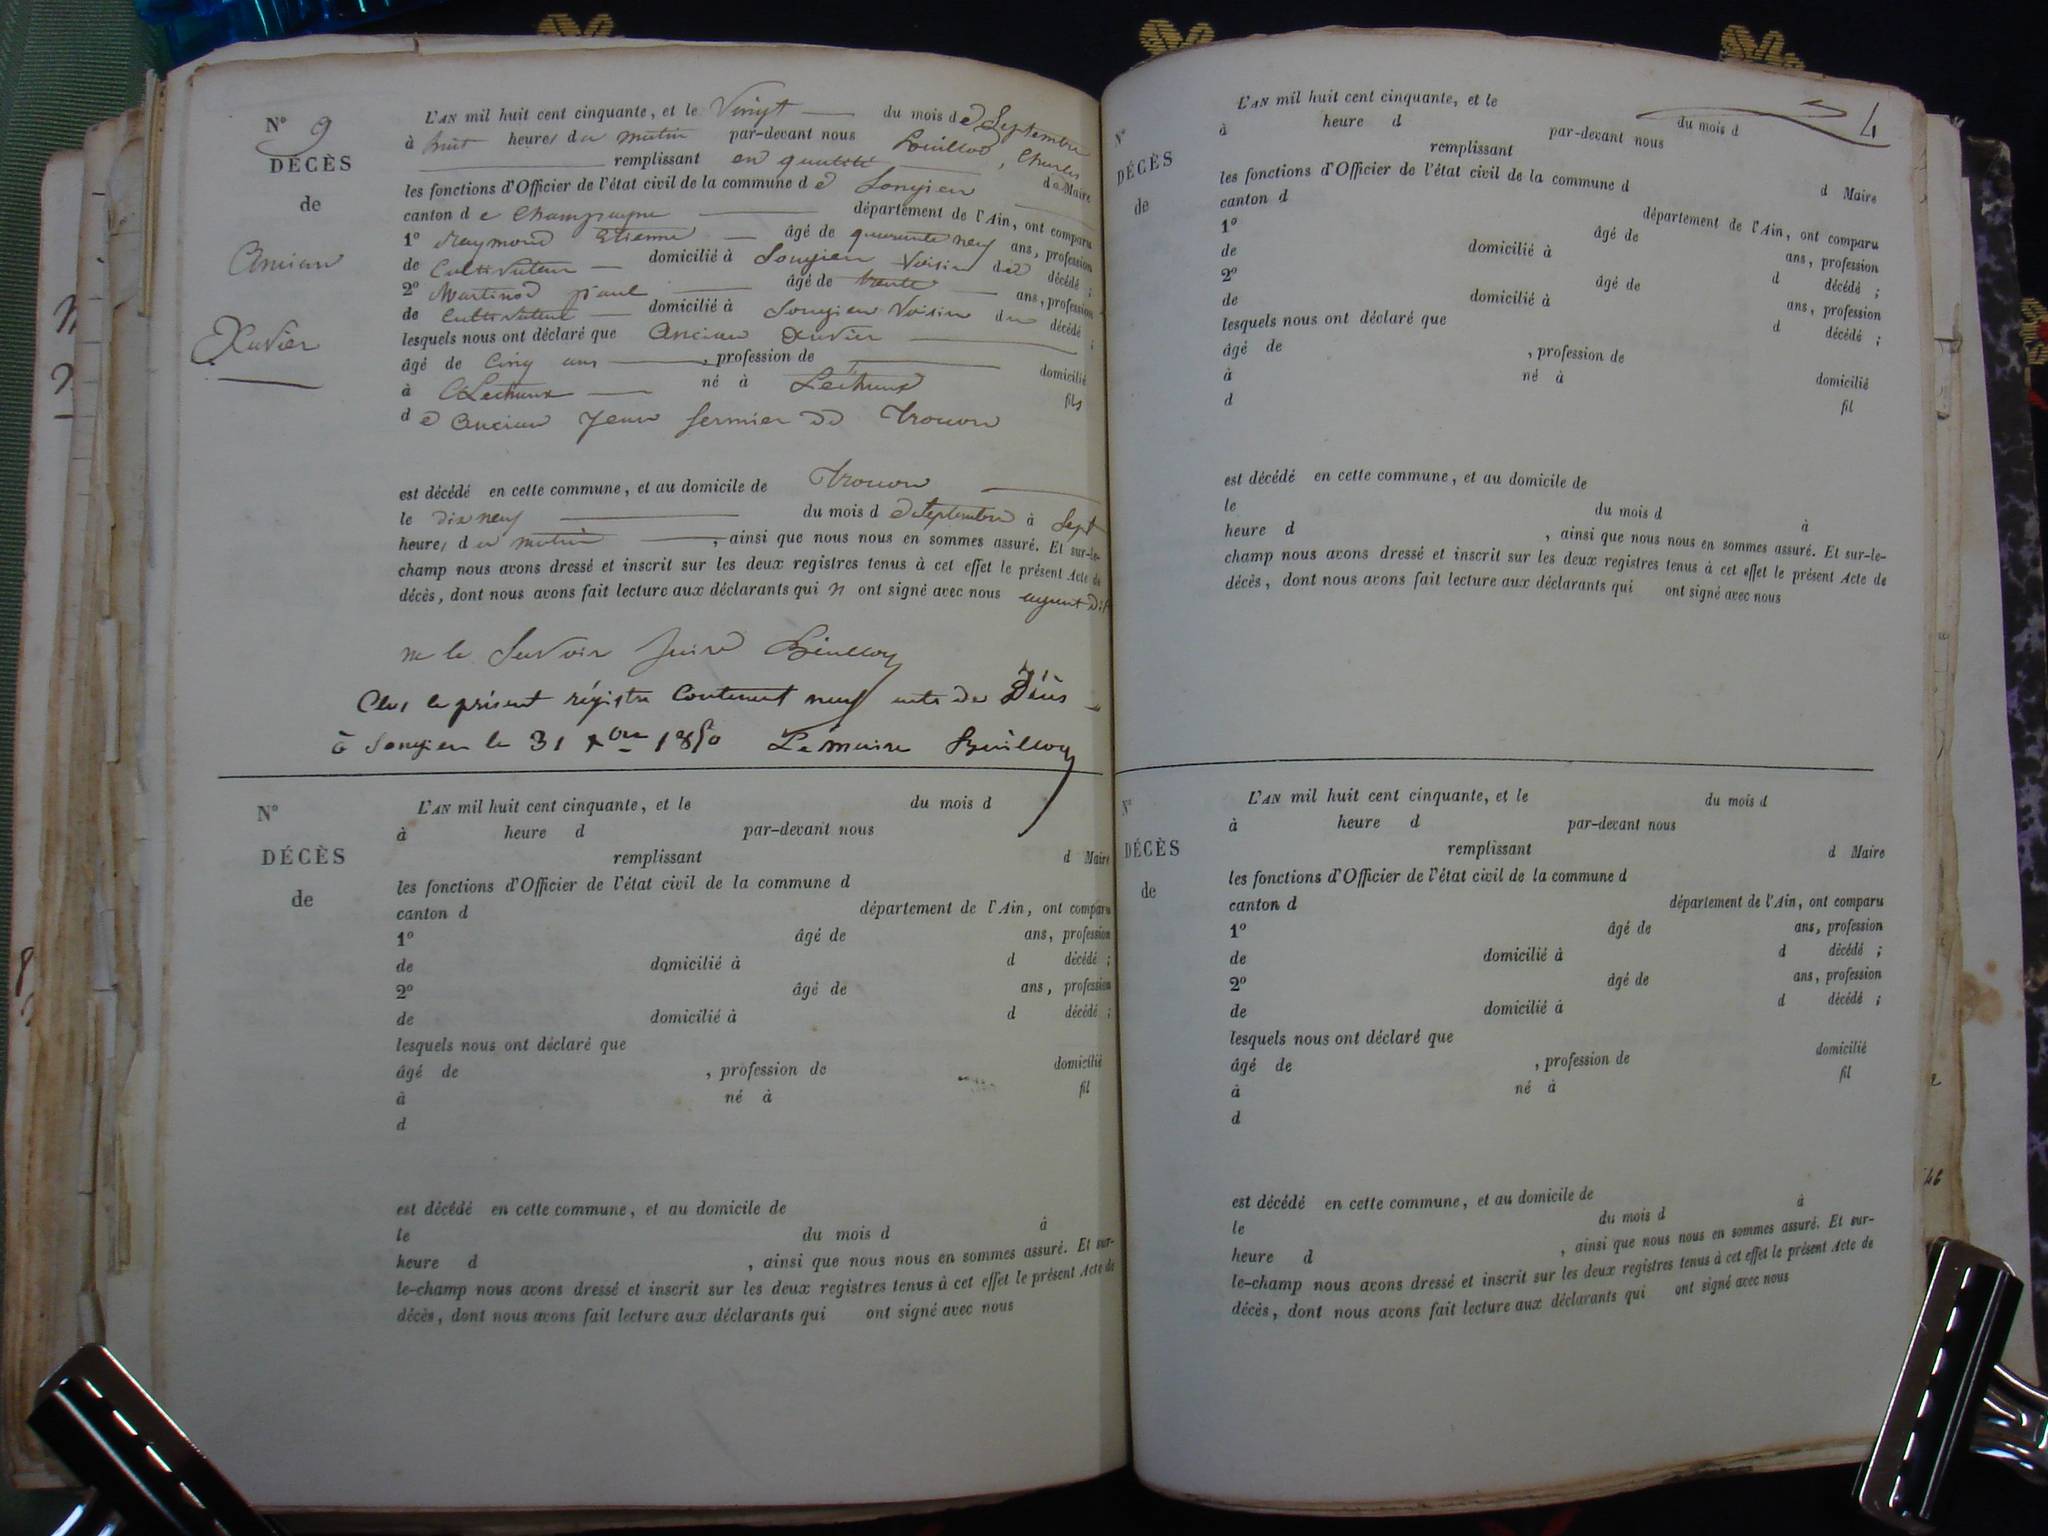 N° 9
DÉCÈS
de
Ancian
Xavier
L'AN mil huit cent cinquante, et le Vingt du mois de Septembre
à huit heures du matin par-devant nous Bouilloud, Charles
remplissant en qualité de Maire
les fonctions d'Officier de l'état civil de la commune de Songieu
canton de Champagne département de l'Ain, ont comparu
1° Raymond Etienne âgé de quarante neuf ans, profession
de Cultivateur domicilié à Songieu Voisin du décédé ;
2° Martinod paul âgé de trente ans, profession
de Cultivateur domicilié à Songieu Voisin du décédé ;
lesquels nous ont déclaré que Ancian Xavier
âgé de Cinq ans , profession de domicilié
à né à fils
de Ancian Jean fermier
est décédé en cette commune, et au domicile de
le dix neuf du mois de Septembre à Sept
heures du matin , ainsi que nous nous en sommes assuré. Et sur-le-
champ nous avons dressé et inscrit sur les deux registres tenus à cet effet le présent Acte de
décès, dont nous avons fait lecture aux déclarants qui n ont signé avec nous ayant dit
ne le Savoir faire
Clos le présent régistre Contenant neuf acte de Décès
à Songieu le 31 xbre 1850 Le maire
N°
DÉCÈS
de
L'AN mil huit cent cinquante, et le du mois d
à heure d par-devant nous
remplissant d Maire
les fonctions d'Officier de l'état civil de la commune d
canton d département de l'Ain, ont comparu
1° âgé de ans, profession
de domicilié à d décédé ;
2° âgé de ans, profession
de domicilié à d décédé ;
lesquels nous ont déclaré que
âgé de , profession de domicilié
à né à fil
d
est décédé en cette commune, et au domicile de
le du mois d à
heure d , ainsi que nous nous en sommes assuré. Et sur-
le-champ nous avons dressé et inscrit sur les deux registres tenus à cet effet le présent Acte de
décès, dont nous avons fait lecture aux déclarants qui ont signé avec nous
4
N°
DÉCÈS
de
L'AN mil huit cent cinquante, et le du mois d
à heure d par-devant nous
remplissant d Maire
les fonctions d'Officier de l'état civil de la commune d
canton d département de l'Ain, ont comparu
1° âgé de ans, profession
de domicilié à d décédé ;
2° âgé de ans, profession
de domicilié à d décédé ;
lesquels nous ont déclaré que
âgé de , profession de domicilié
à né à fil
d
est décédé en cette commune, et au domicile de
le du mois d à
heure d , ainsi que nous nous en sommes assuré. Et sur-le-
champ nous avons dressé et inscrit sur les deux registres tenus à cet effet le présent Acte de
décès, dont nous avons fait lecture aux déclarants qui ont signé avec nous
N°
DÉCÈS
de
L'AN mil huit cent cinquante, et le du mois d
à heure d par-devant nous
remplissant d Maire
les fonctions d'Officier de l'état civil de la commune d
canton d département de l'Ain, ont comparu
1° âgé de ans, profession
de domicilié à d décédé ;
2° âgé de ans, profession
de domicilié à d décédé ;
lesquels nous ont déclaré que
âgé de , profession de domicilié
à né à fil
d
est décédé en cette commune, et au domicile de
le du mois d à
heure d , ainsi que nous nous en sommes assuré. Et sur-
le-champ nous avons dressé et inscrit sur les deux registres tenus à cet effet le présent Acte de
décès, dont nous avons fait lecture aux déclarants qui ont signé avec nous
46